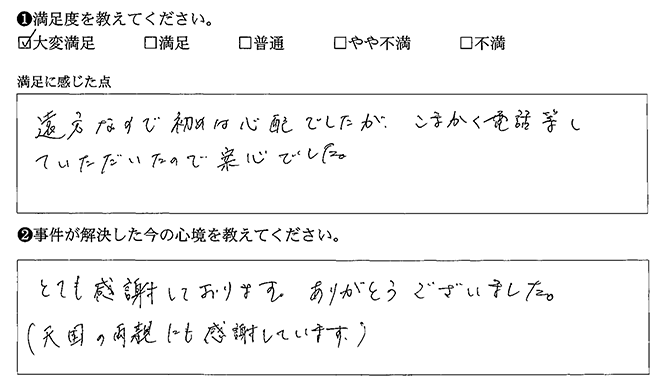 ❶満足度を教えてください。
☑大変満足 □満足 □普通 □やや不満 □不満
満足に感じた点
遠方なので初めは心配でしたが、こまかく電話等し
ていただいたので案心でした。
❷事件が解決した今の心境を教えてください。
とても感謝しております。ありがとうございました。
(天国の両親にも感謝しています。)